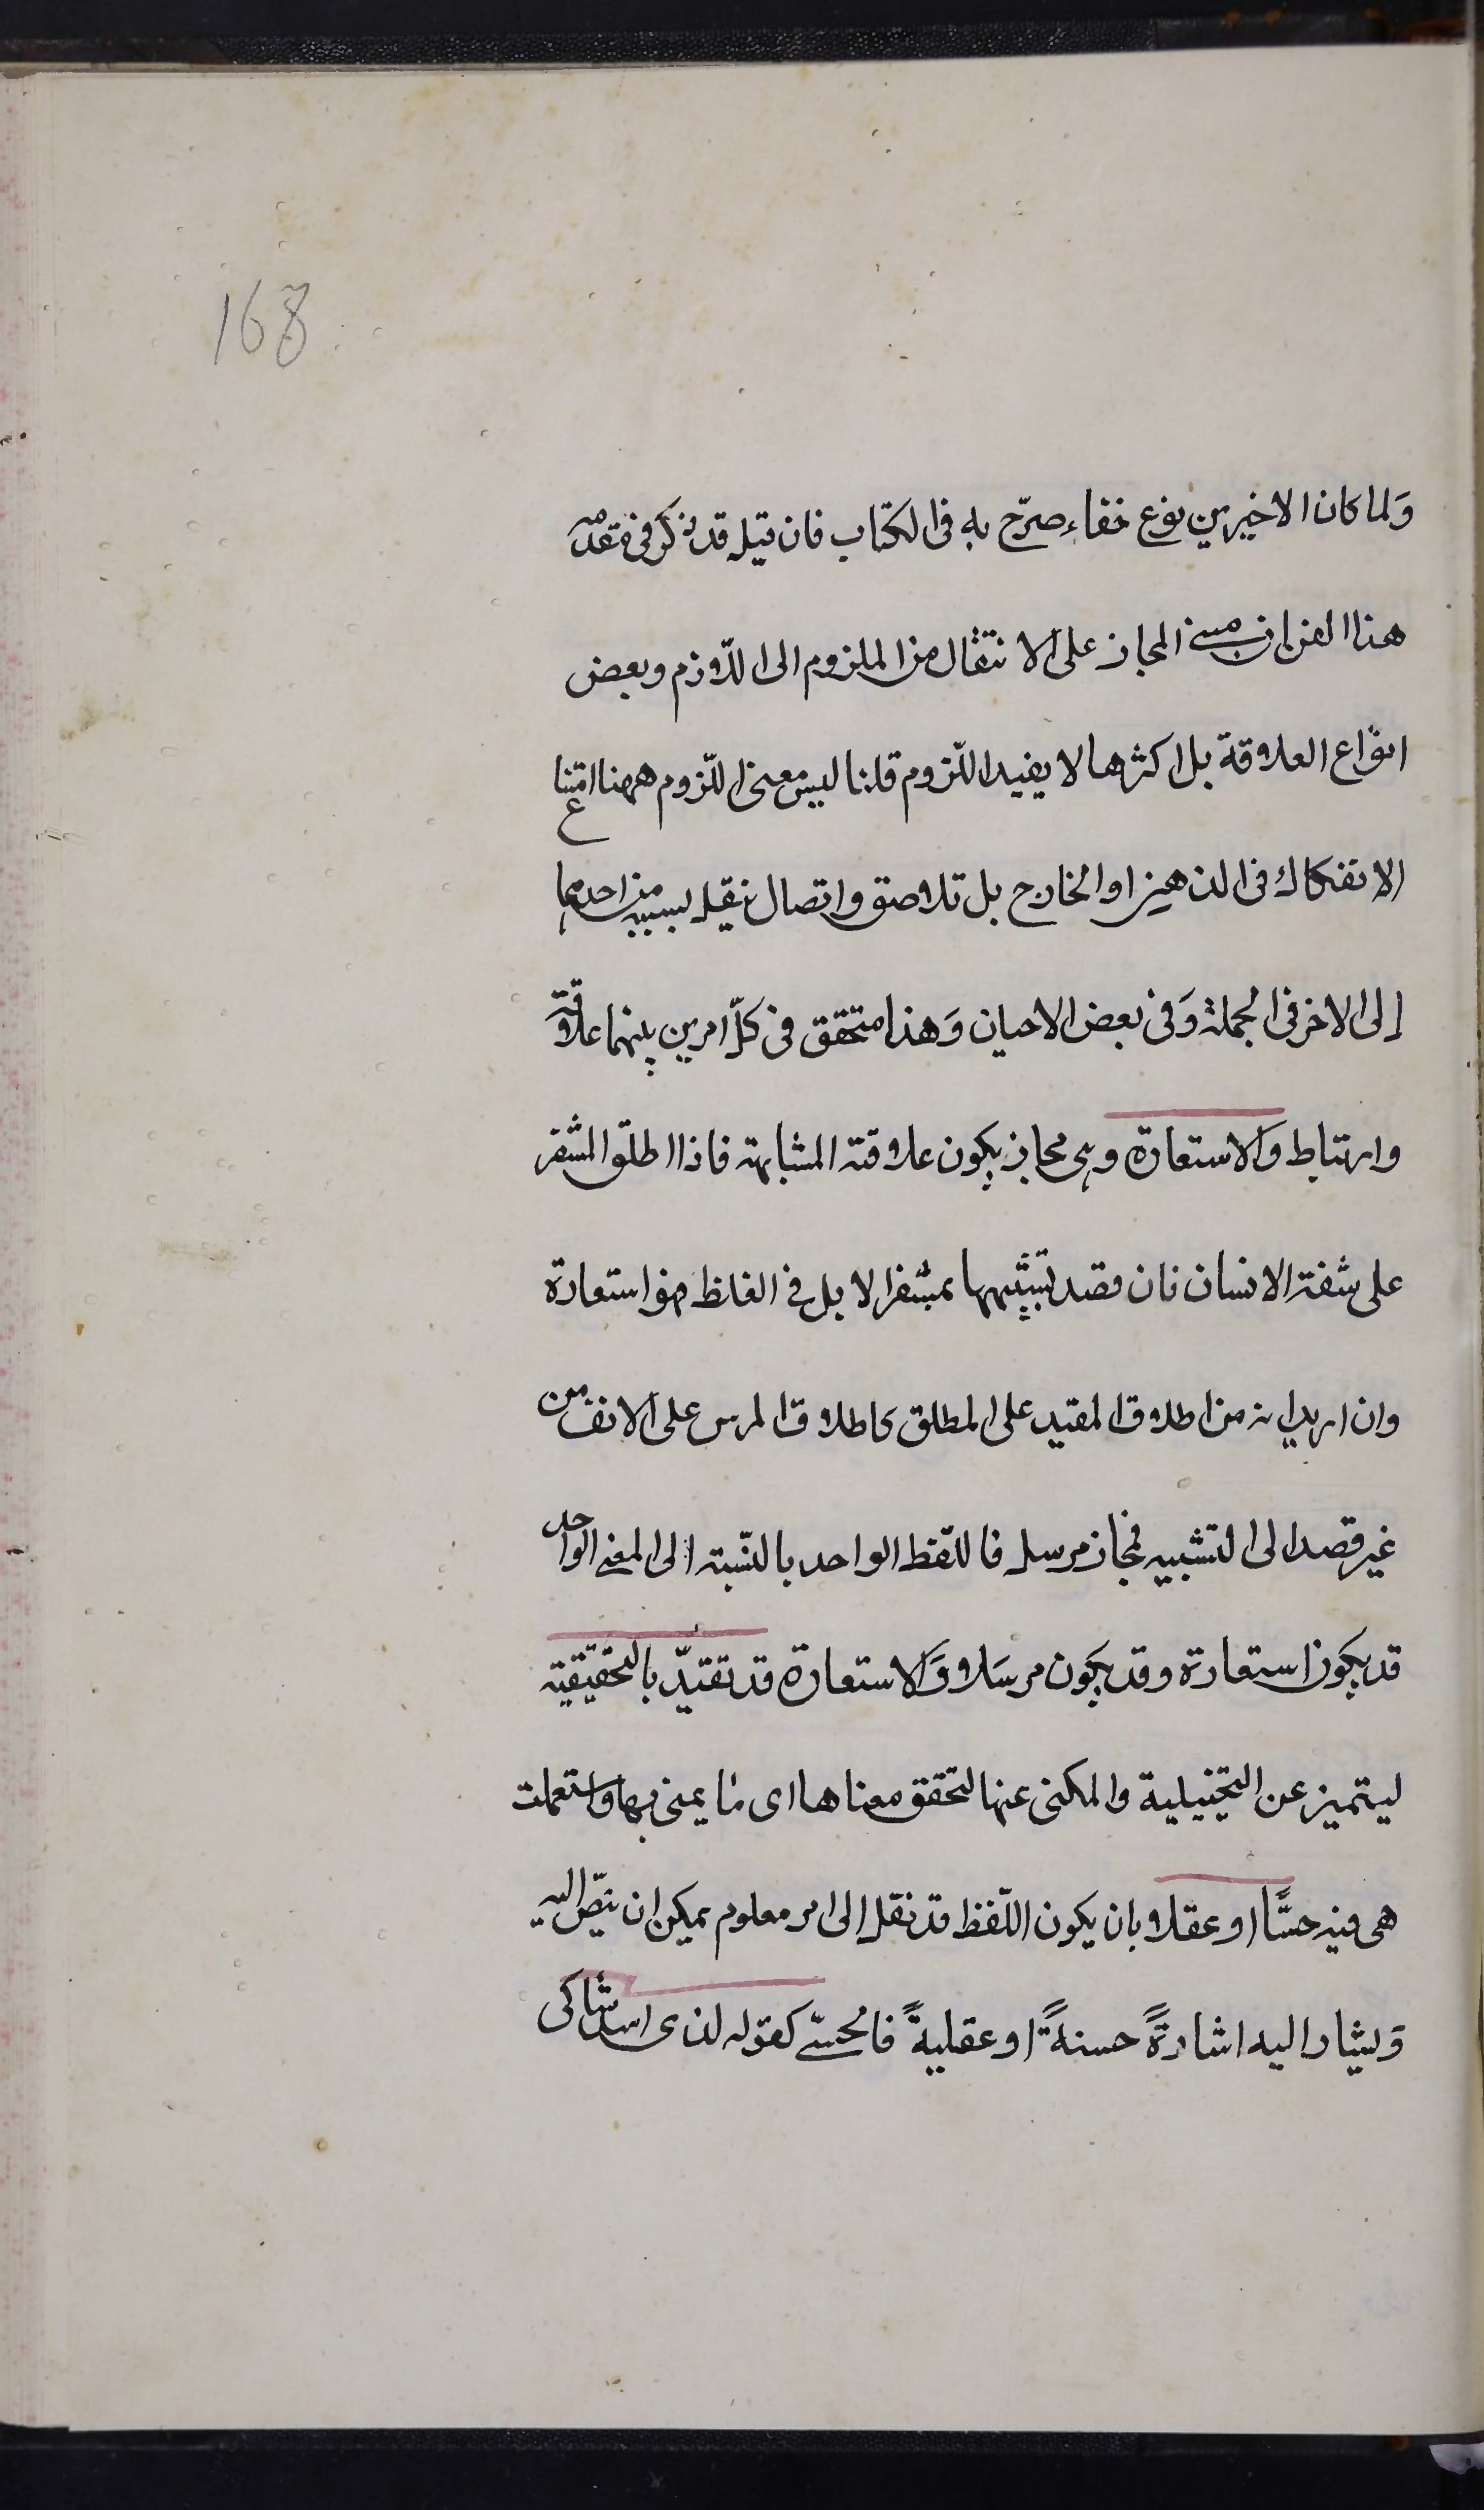 168
وَلما كان الاخيرين نوع خفاء صرّح به فى الكتاب فان قيل قد ذكر فى مقدمه
هذا الفن ان مبنى المجاز على الانتقال من الملزوم الى اللّازم وبعض
انواع العلاقة بل اكثرها لا يفيد اللّزوم قلنا ليس معنى اللّزوم ههنا امتناع
الانفكاك فى الذهن او الخارج بل تلاصق واتصال ينتقل بسببه من احدهما
إلى الاخر فى الجملة وَفى بعض الاحيان وَهذا متحقق فى كلّ امرين بينهما علاقة
وارتباط وَالاستعارة وهى مجاز يكون علاقته المشابهة فاذا اطلق المشفر
على شفة الانسان فان قصد تشبيهها بمشفر الابل فى الغلظ فهو استعارة
وان اريد انه من اطلاق المقيد على المطلق كاطلاق المرسن على الانف من
غير قصد الى التشبيه فمجاز مرسل فاللّفظ الواحد بالنّسبة الى المعنى الواحد
قد يكون استعارة وقد يكون مرسَلا وَالاستعارة قد تقيّد بالتحقيقية
ليتميز عن التخييلية والمكنى عنها لتحقق معناها اى ما يعنى بها واستعملت
هى فيه حسًّا او عقلا بان يكون اللّفظ قد نقل الى امر معلوم يمكن ان ينصّ اليه
وَيشار اليه اشارةً حسيةً او عقليةً فالحسّى كقوله لدى اسد شاكى